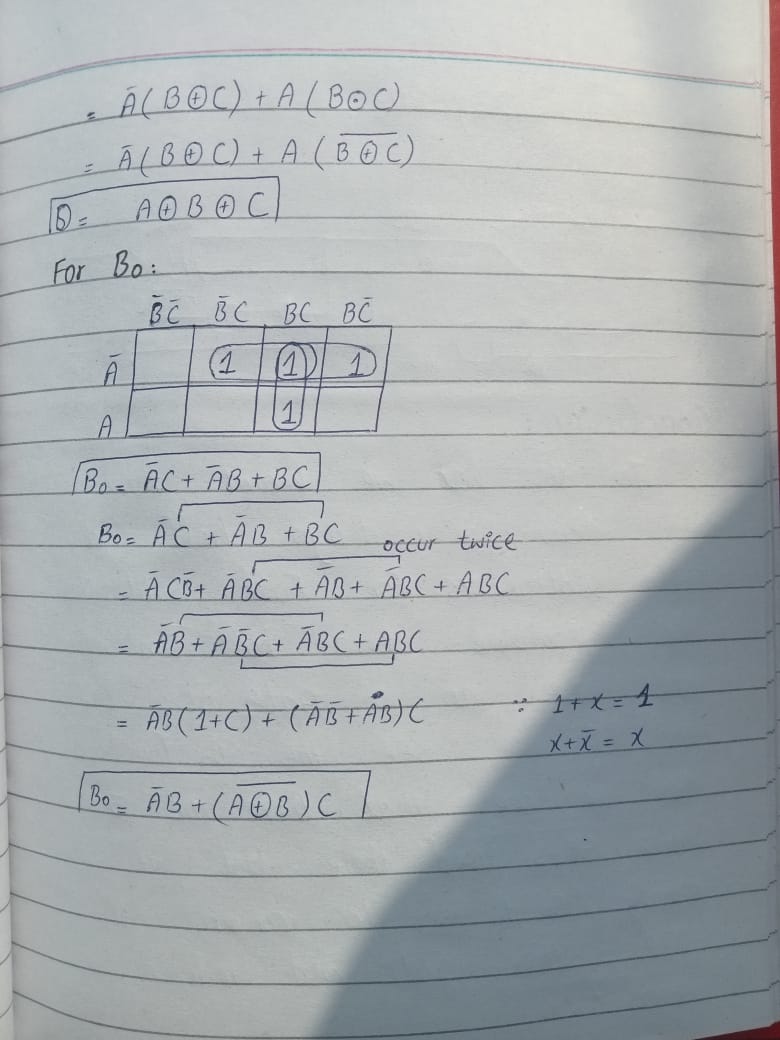 = Ā(B⊕C) + A(B⊙C)
= Ā(B⊕C) + A(B̅ ⊕̅ C̅)
D = A⊕B⊕C
For B₀:
B̄C̄ B̄C BC BC̄
Ā 1 1 1
A 1
B₀ = ĀC + ĀB + BC
B₀ = ĀC + ĀB + BC occur twice
= ĀCB̄ + ĀBC + ĀB + ĀBC + ABC
= ĀB + ĀB̄C + ĀBC + ABC
= ĀB(1+C) + (ĀB̄ + AB)C ∵ 1+x = 1
x+x̄ = x
B₀ = ĀB + (A̅ ⊕̅ B̅)C